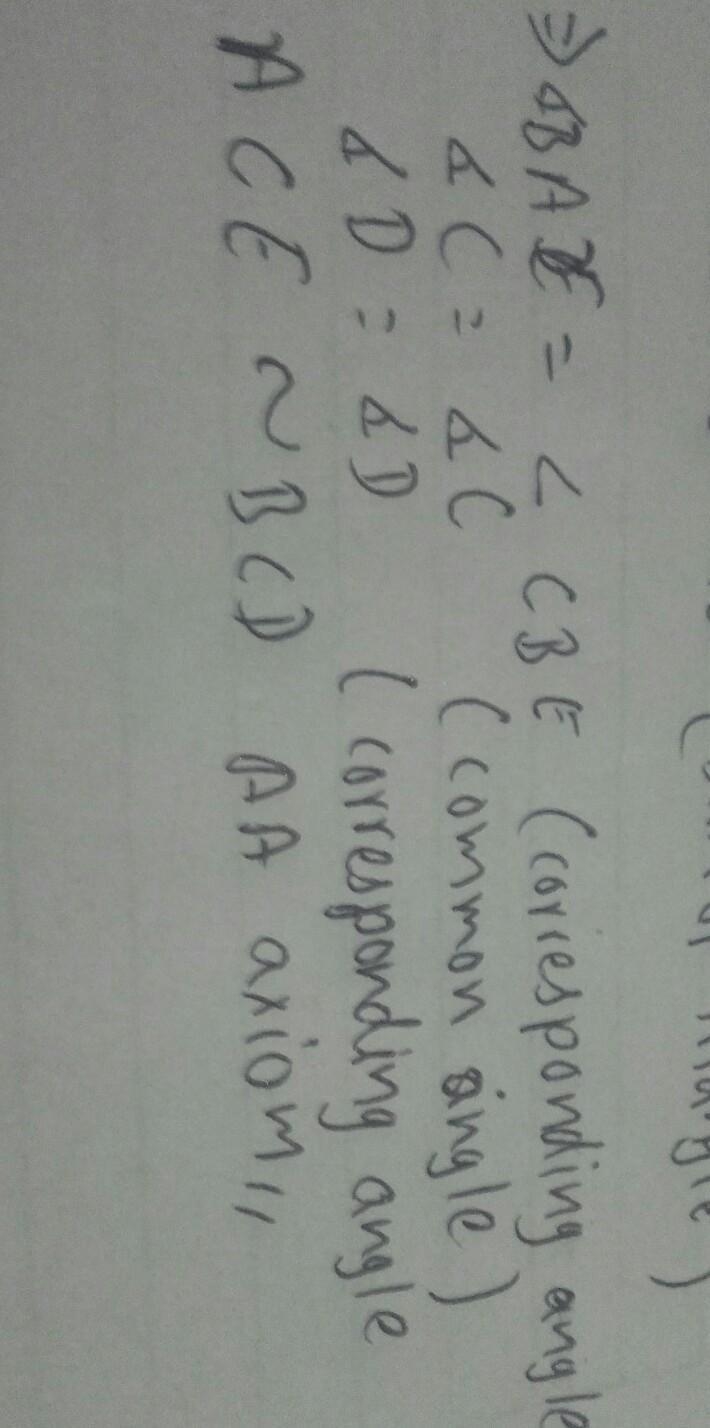 ⇒ ∠BAE = ∠CBE (corresponding angle
∠C = ∠C (common angle)
∠D = ∠D (corresponding angle
ACE ~ BCD AA axiom,,